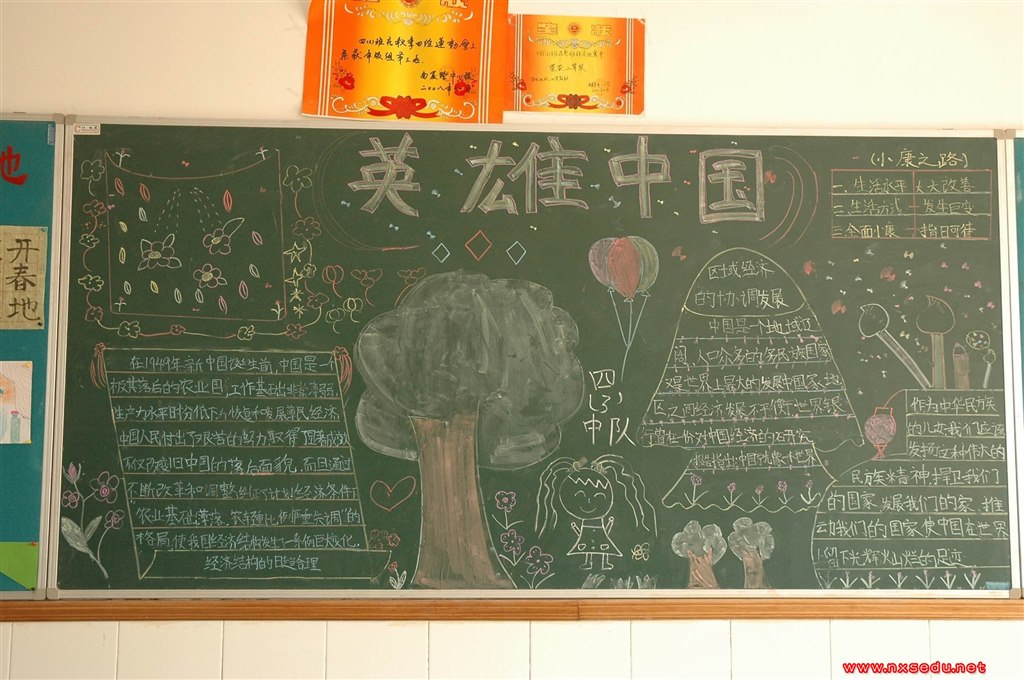 奖状
四(3)班在秋季田径运动会上
荣获年级组第三名
二00八年
奖状
地
开春地
英雄中国
(小康之路)
一 生活水平 大大改善
二 生活方式 发生巨变
三 全面小康 指日可待
在1949年新中国诞生前,中国是一个
极其落后的农业国,工作基础非常薄弱,
生产力水平时分低下为恢复和发展国民经济,
中国人民付出了艰苦的努力取得了显著成效
不仅改变旧中国的落后面貌,而且通过
不断改革和调整纠正了计划经济条件下
农业基础薄落、
格局,使我国经济结构发生了一系例巨大变化,
经济结构的日趋合理
四(3)中队
区域经济
的协调发展
中国是一个地域辽
阔,人口众多的多民族国家
又是世界上最大的发展中国家,地
区之间经济发展不平衡,世界银
行曾在一份对中国经济的研究
报告指出:中国
作为中华民族
的儿女我们应该
发扬这种伟大的
民族精神捍卫我们
的国家,发展我们的家,推
动我们的国家使中国在世界
上留下光辉灿烂的足迹
www.nxsedu.net